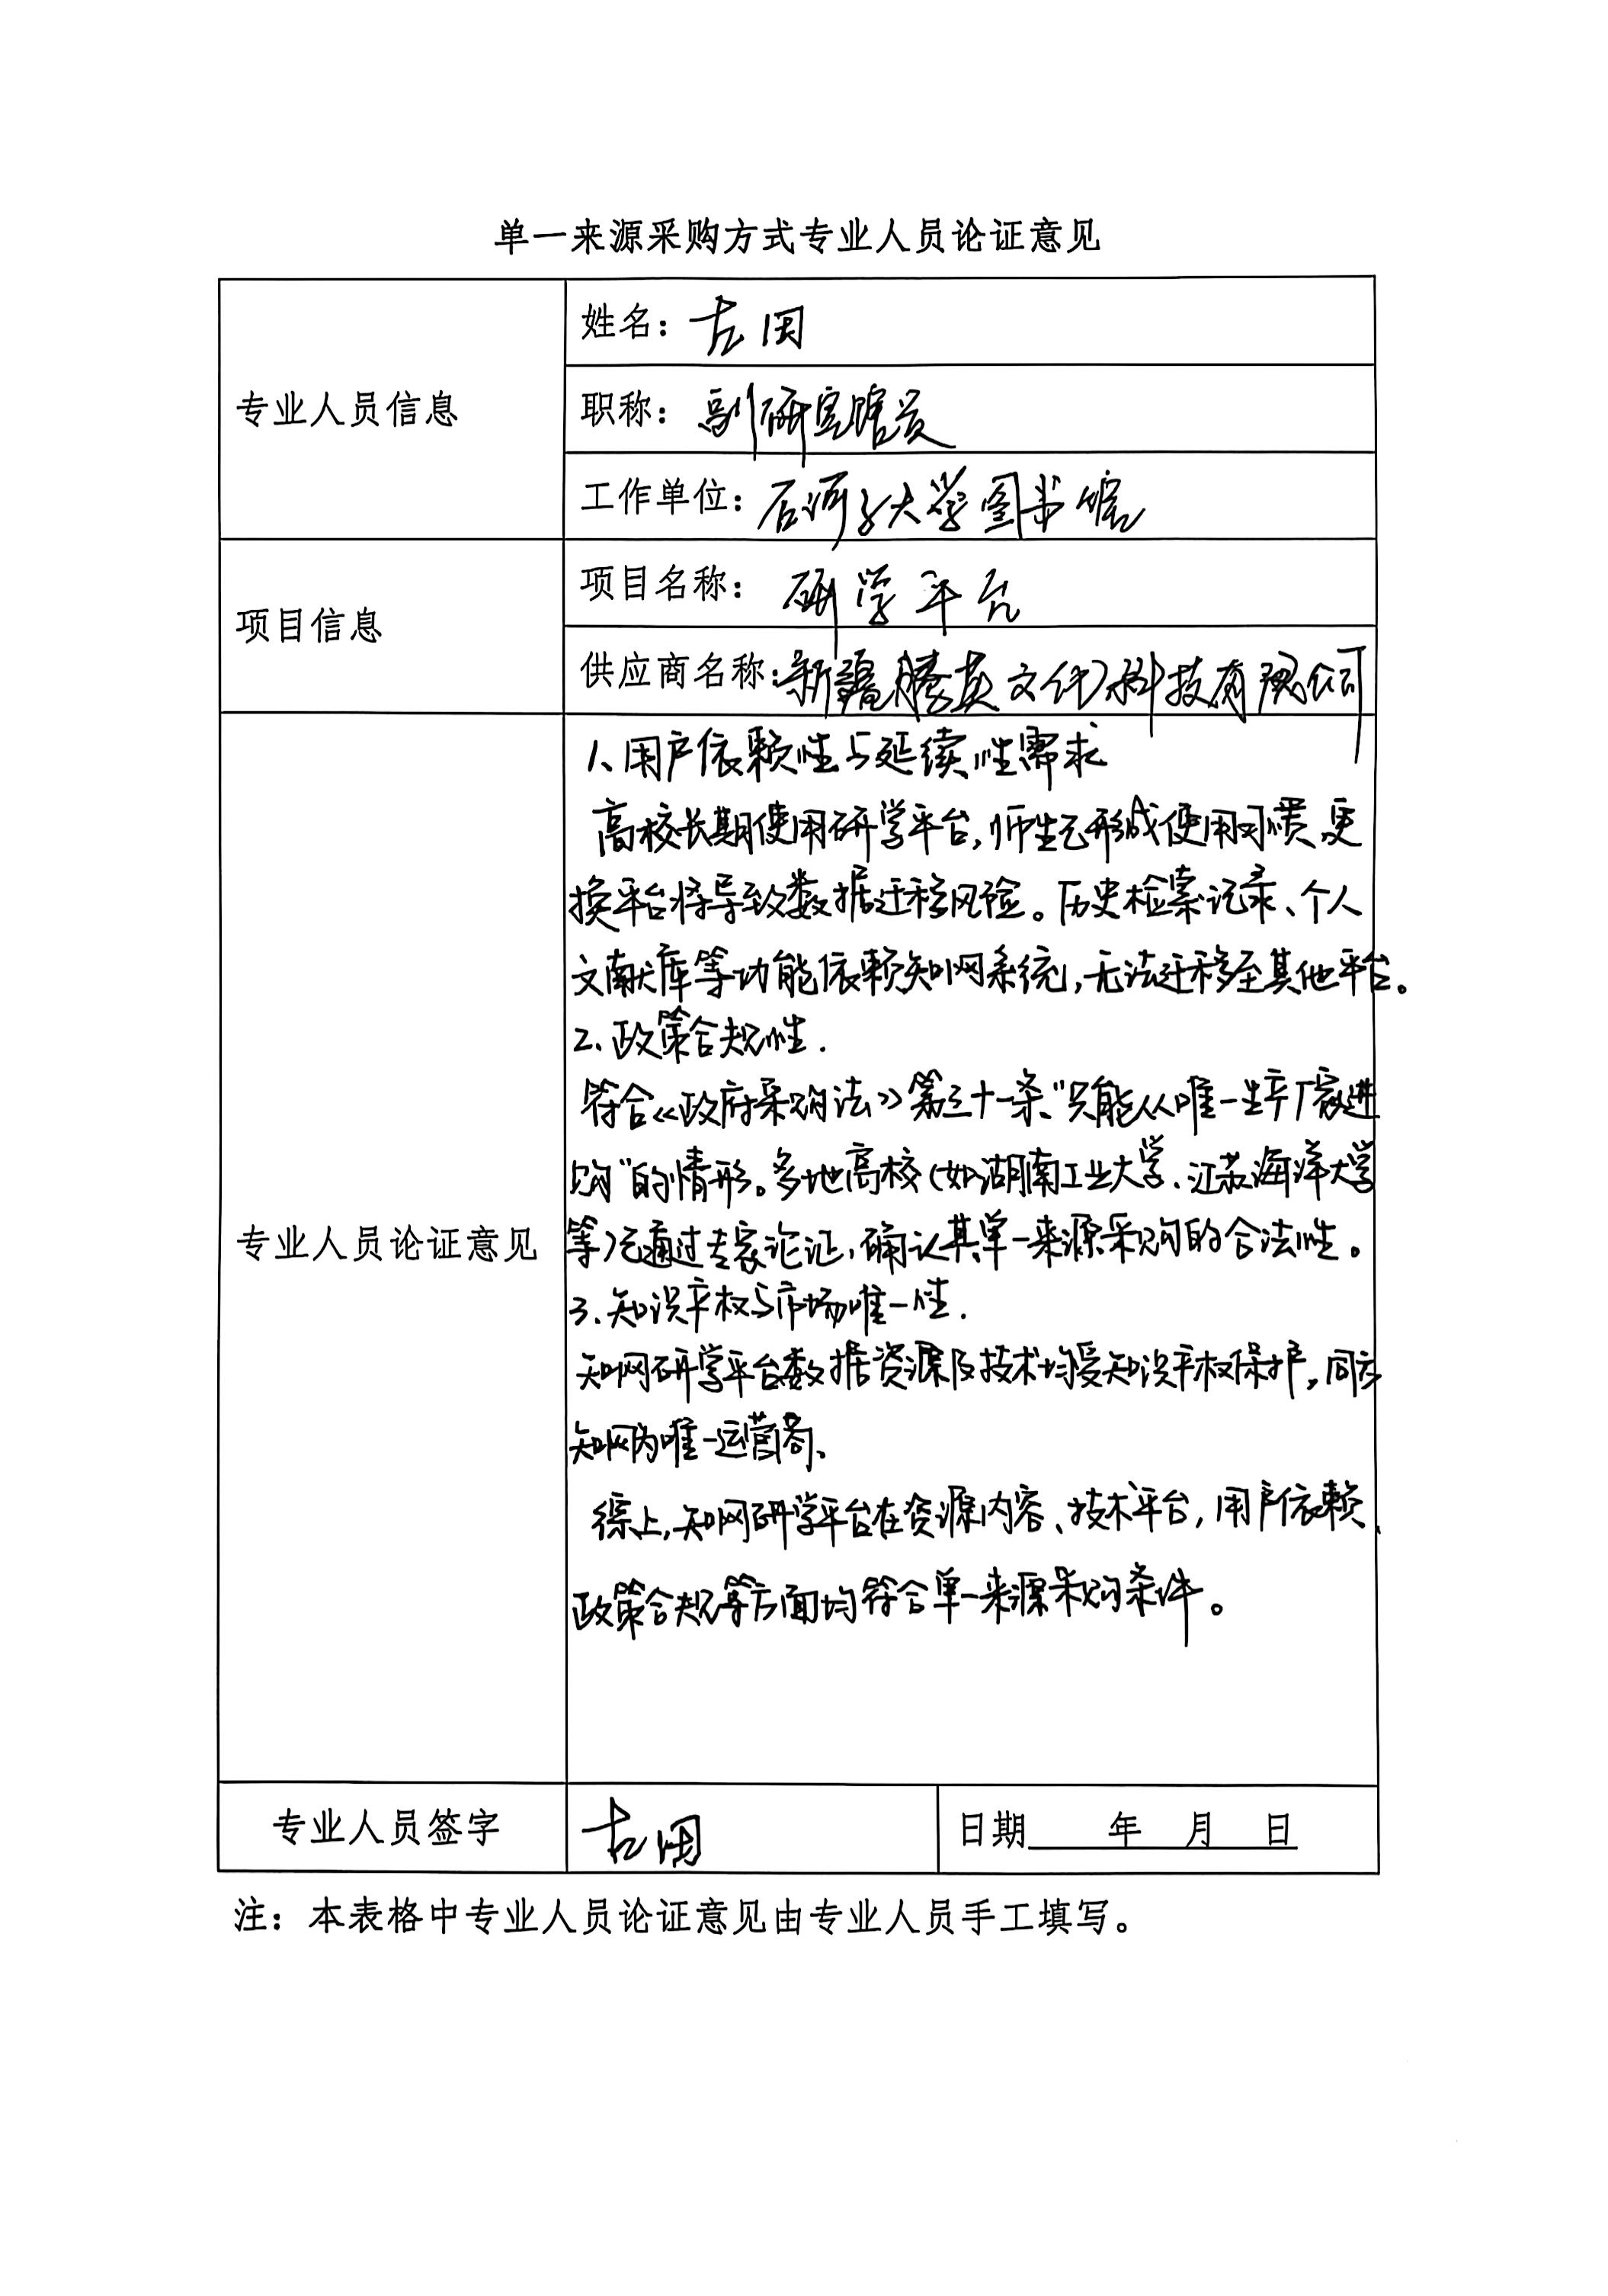 单一来源采购方式专业人员论证意见
专业人员信息
姓名：
职称：副研究馆员
工作单位：石河子大学图书馆
项目信息
项目名称：研学平台
供应商名称：新疆腾英文化科技有限公司
专业人员论证意见
1、用户依赖性与延续性需求
高校长期使用研学平台，师生已形成使用习惯，更
换平台将导致数据迁移风险。历史检索记录、个人
文献库等功能依赖知网系统，无法迁移至其他平台。
2、政策合规性.
符合《政府采购法》第三十一条“只能从唯一生产厂家进
购”的情形。多地高校（如湖南工业大学、江苏海洋大学
等）已通过专家论证，确认其单一来源采购的合法性。
3、知识产权与市场唯一性.
知网研学平台数据资源及技术均受知识产权保护，同方
知网为唯一运营商、
综上，知网研学平台在资源内容、技术平台，用户依赖、
政策合规等方面均符合单一来源采购条件。
专业人员签字
日期 年 月 日
注：本表格中专业人员论证意见由专业人员手工填写。